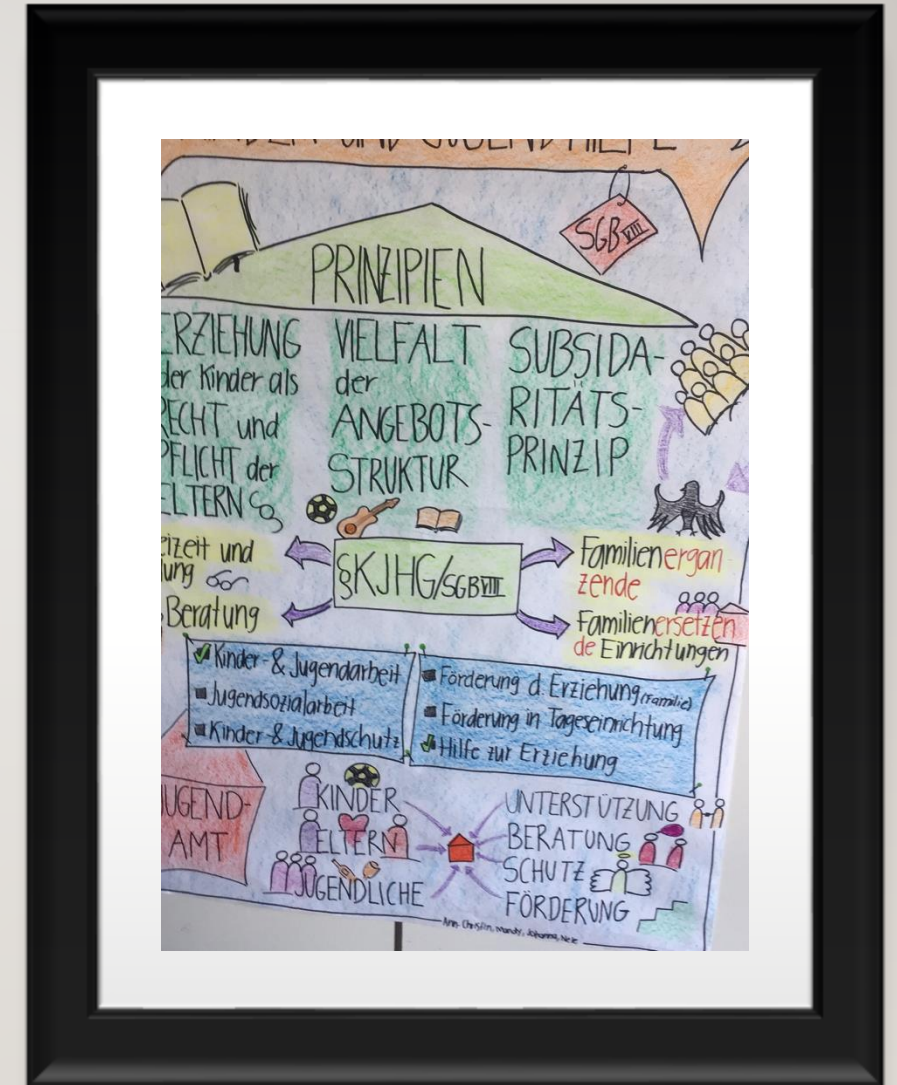 UND JUGENDHILFE
SGB VIII
PRINZIPIEN
ERZIEHUNG
der Kinder als
RECHT und
PFLICHT der
ELTERN §
VIELFALT
der
ANGEBOTS-
STRUKTUR
SUBSIDA-
RITÄTS-
PRINZIP
eizeit und
ung
Beratung
§KJHG/SGBVIII
Familienergän
zende
Familienersetzen
de Einrichtungen
Kinder- & Jugendarbeit
Jugendsozialarbeit
Kinder-& Jugendschutz
Förderung d. Erziehung (Familie)
Förderung in Tageseinrichtung
Hilfe zur Erziehung
JUGEND-
AMT
KINDER
ELTERN
JUGENDLICHE
UNTERSTÜTZUNG
BERATUNG
SCHUTZ
FÖRDERUNG
Ann-Christin, Mandy, Johanna, Nele